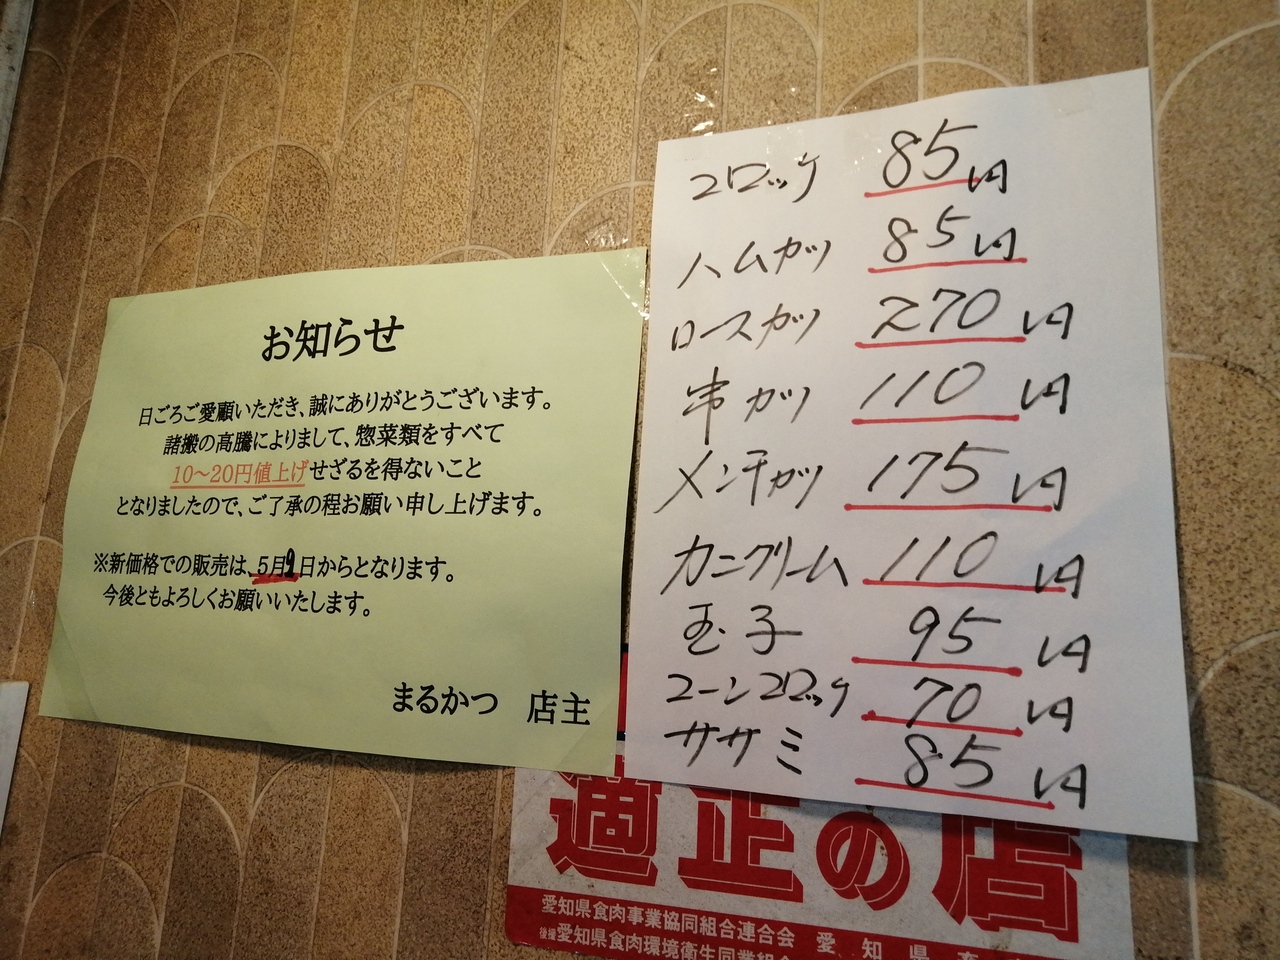 お知らせ
日ごろご愛顧いただき、誠にありがとうございます。
諸搬の高騰によりまして、惣菜類をすべて
10～20円値上げせざるを得ないこと
となりましたので、ご了承の程お願い申し上げます。
※新価格での販売は、5月9日からとなります。
今後ともよろしくお願いいたします。
まるかつ 店主
コロッケ 85円
ハムカツ 85円
ロースカツ 270円
串カツ 110円
メンチカツ 175円
カニクリーム 110円
玉子 95円
コーンコロッケ 70円
ササミ 85円
適正の店
愛知県食肉事業協同組合連合会 愛知県
後援 愛知県食肉環境衛生同業組合